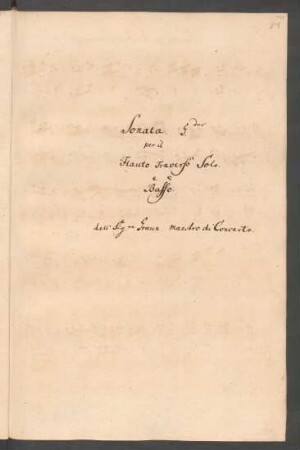 Sonata G dur
per il
Flauto Traverso Solo.
è
Basso.
dell Sigre Graun Maestro di Concerto.